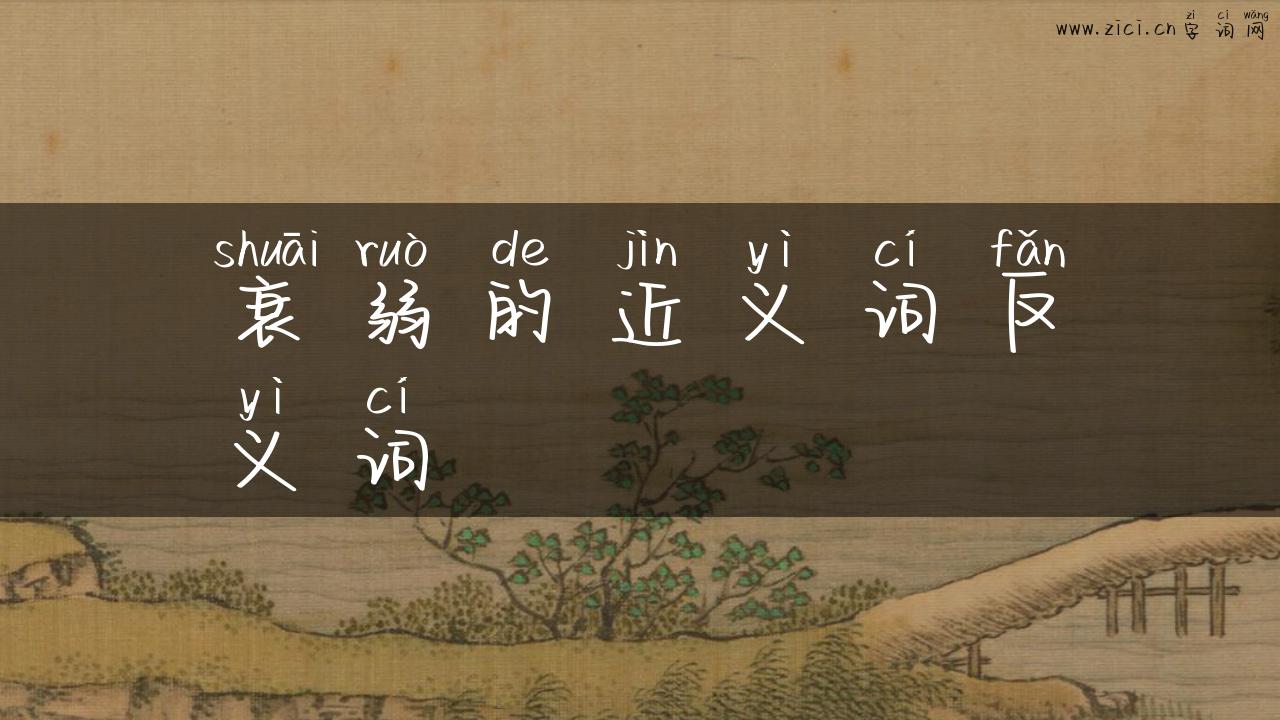 zì cí wǎng
www.zici.cn 字词网
shuāi ruò de jìn yì cí fǎn
衰弱的近义词反
yì cí
义词